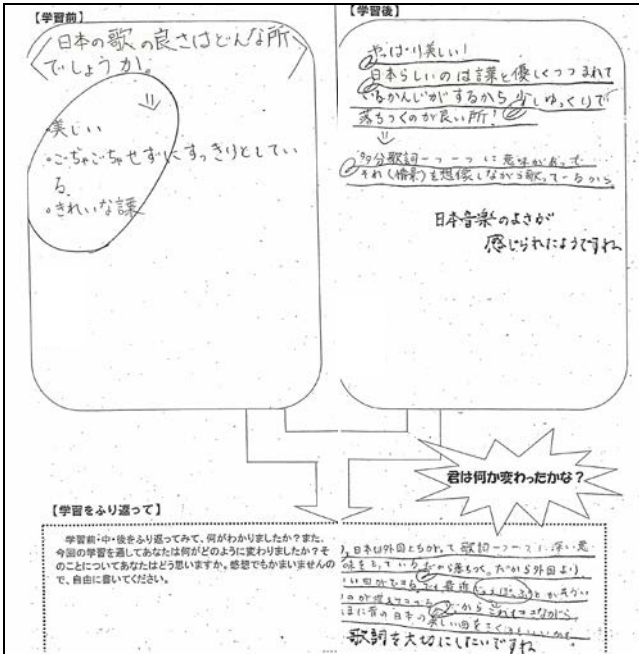 【学習前】
〈日本の歌の良さはどんな所
でしょうか。〉
・美しい
・ごちゃごちゃせずにすっきりとしてい
る
・きれいな
【学習後】
やっぱり美しい!
日本らしいのは言葉と優しくつつまれて
いるかんじがするから少しゆっくりで
落ちつくのが良い所!
多分歌詞一つ一つに意味があって
それ(情景)を想像しながら歌っているから
日本音楽のよさが
感じられたようですね
君は何か変わったかな?
【学習をふり返って】
学習前・中・後をふり返ってみて、何がわかりましたか?また、
今回の学習を通してあなたは何がどのように変わりましたか?そ
のことについてあなたはどう思いますか。感想でもかまいませんの
で、自由に書いてください。
日本は外国とちがって歌詞一つ一つに深い意
味をもっている だから落ちつく。だから外国より
最近
昔の日本の美しい曲を
歌詞を大切にしたいですね